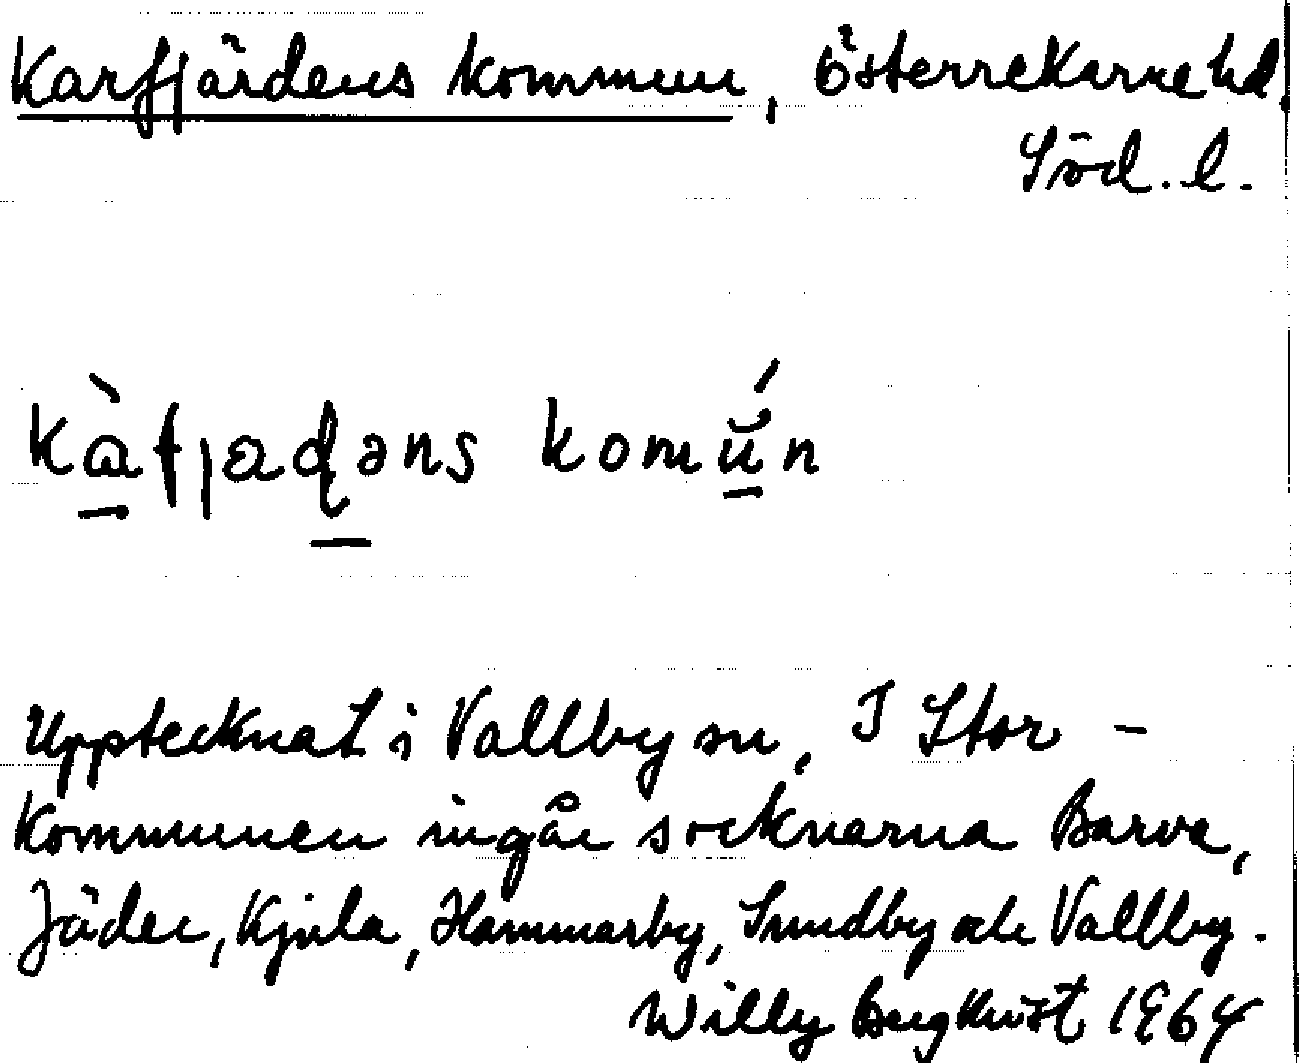 Karfjärdens kommun, Österrekarne hd.
Söd. l.
kàfjaḍəns komún
Upptecknat i Vallby sn, I Stor-
kommunen ingår socknarna Barva,
Jäder, Kjula, Hammarby, Sundby och Vallby.
Willy Bergkvist 1964